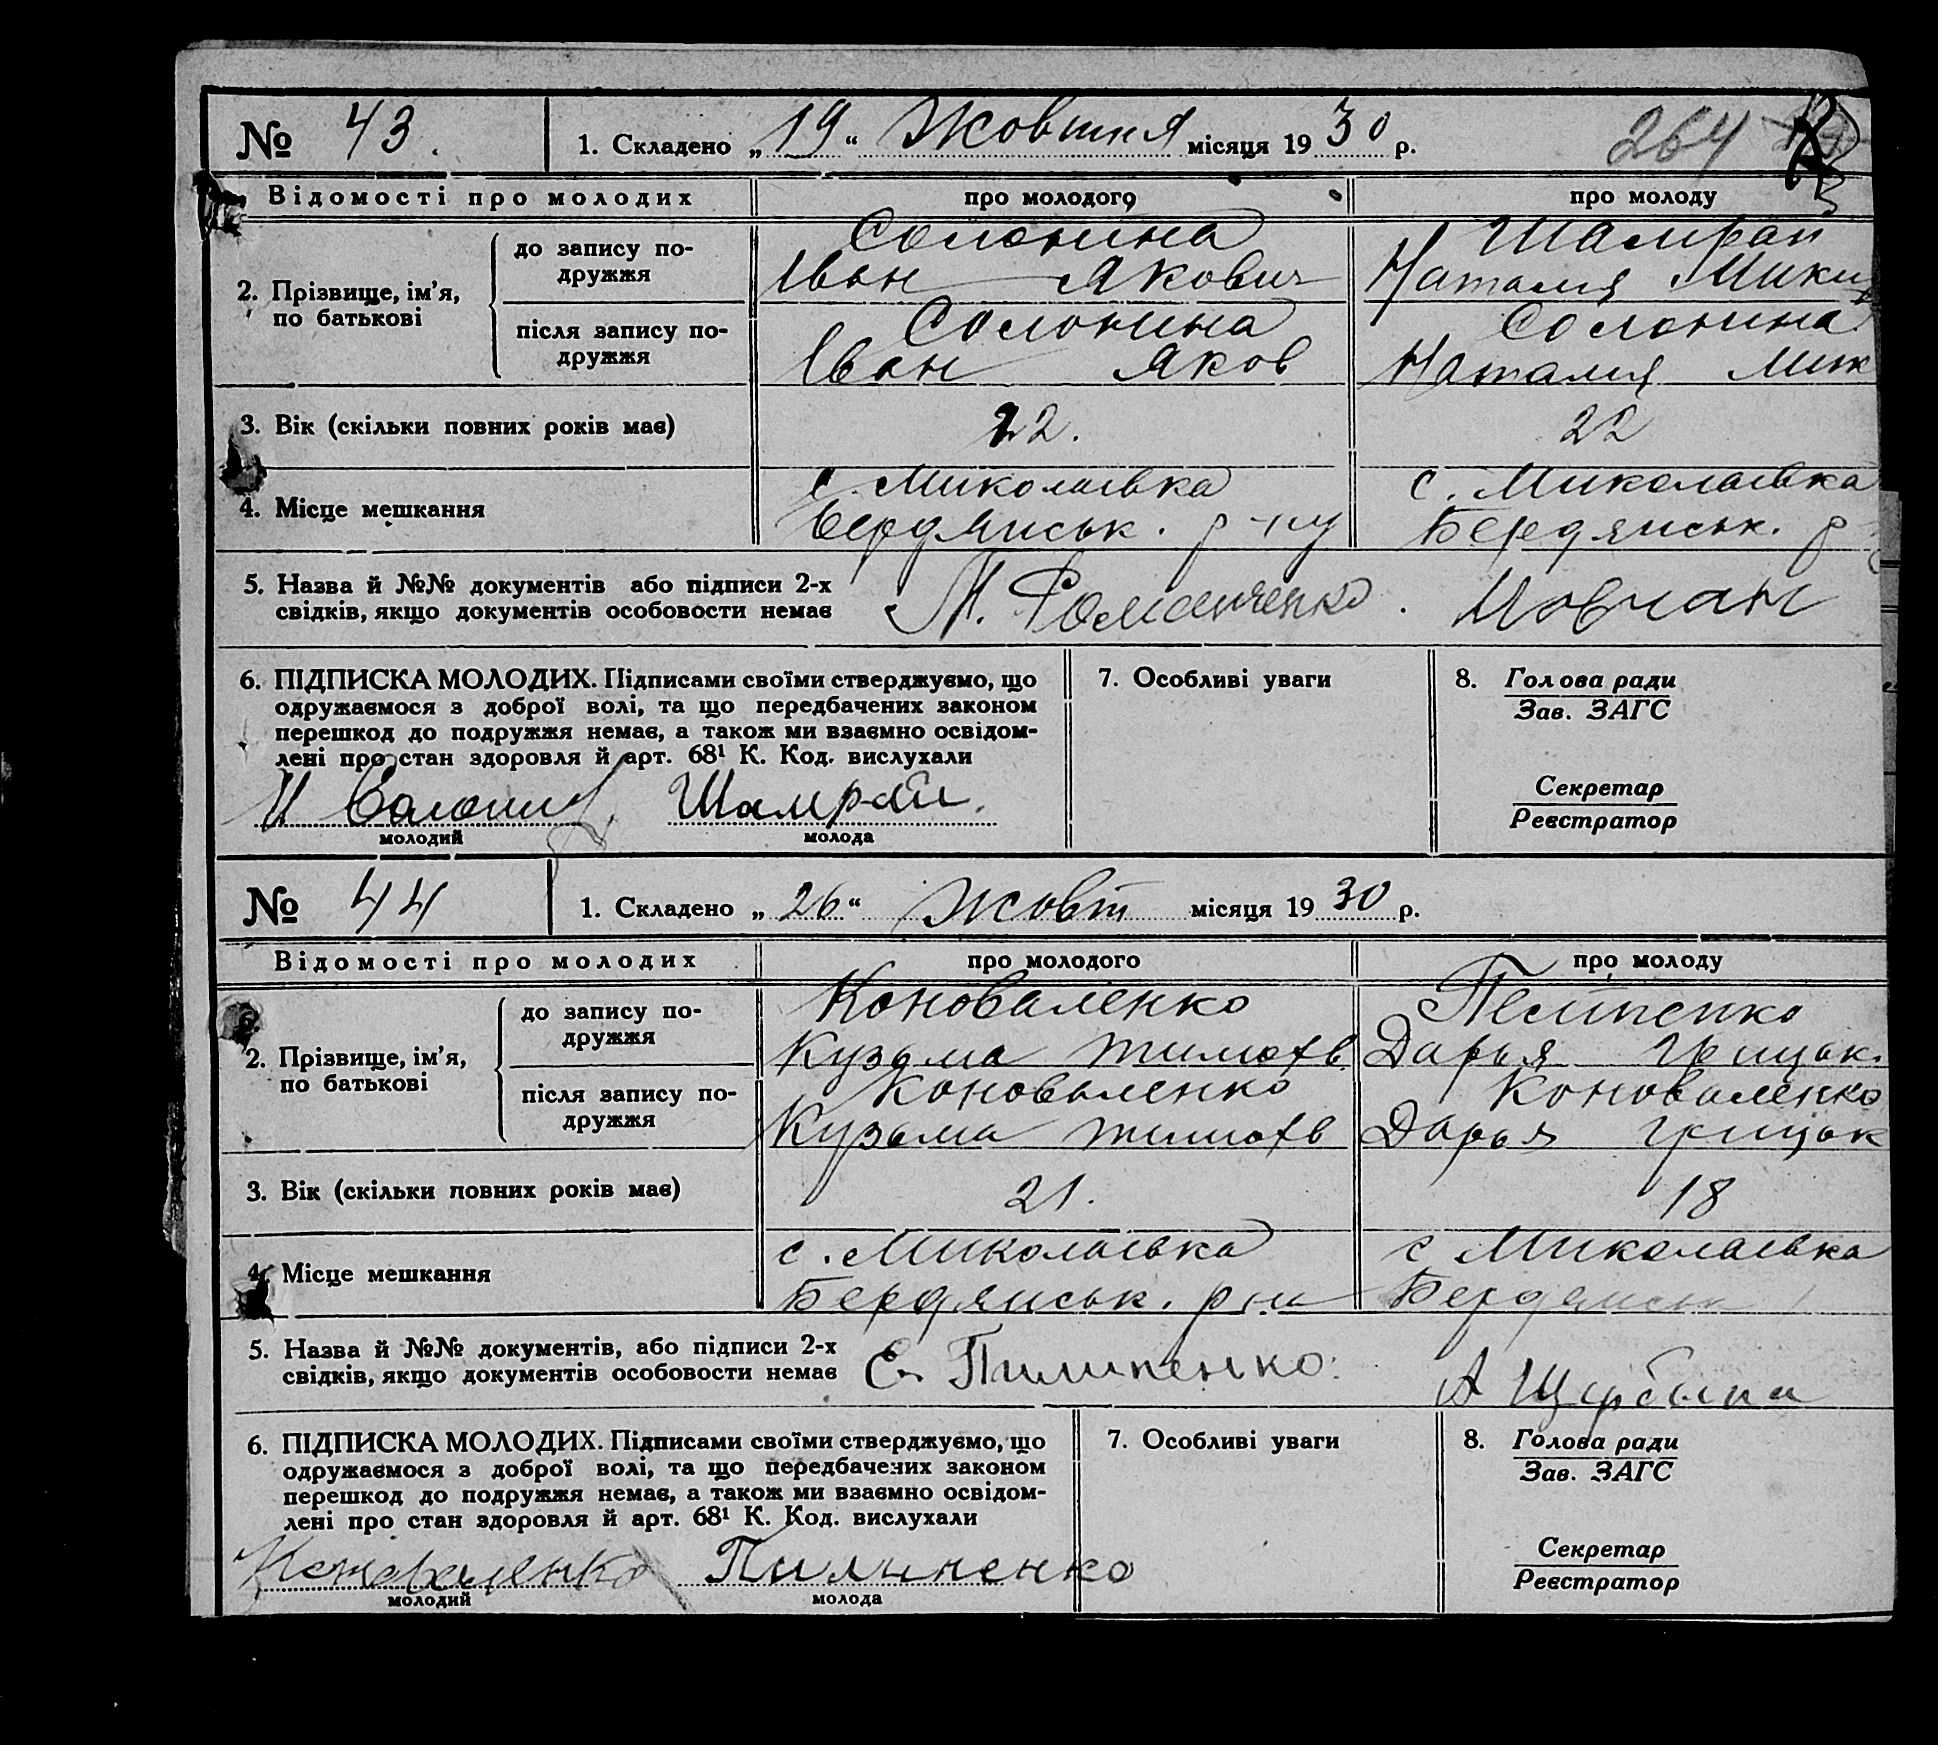 № 43. 1. Складено „19“ Жовтня місяця 1930 р. 264
Відомості про молодих про молодого про молоду
2. Прізвище, ім’я, по батькові
до запису подружжя
Солонина Шамрай
Іван Якович Наталия Мики
після запису подружжя
Солонина Солонина
Іван Яков Наталия Мик
3. Вік (скільки повних років має) 22. 22
4. Місце мешкання
с. Миколаівка с. Миколаівка
Бердянськ. р-ну Бердянськ. р
5. Назва й №№ документів або підписи 2-х
свідків, якщо документів особовости немає М. Романченко. Мовчан
6. ПІДПИСКА МОЛОДИХ. Підписами своїми стверджуємо, що
одружаємося з доброї волі, та що передбачених законом
перешкод до подружжя немає, а також ми взаємно освідом-
лені про стан здоровля й арт. 68¹ К. Код. вислухали
И Шамрай.
молодий молода
7. Особливі уваги
8. Голова ради
Зав. ЗАГС
Секретар
Реєстратор
№ 44 1. Складено „26“ Жовт місяця 1930 р.
Відомості про молодих про молодого про молоду
2. Прізвище, ім’я, по батькові
до запису подружжя
Коноваленко
Кузьма Тимофв Дарья Грицьк.
після запису подружжя
Коноваленко Коноваленко
Кузьма Тимофв Дарья Грицьк
3. Вік (скільки повних років має) 21. 18
4. Місце мешкання
с. Миколаівка с Миколаівка
Бердянськ. р-ну Бердянськ
5. Назва й №№ документів, або підписи 2-х
свідків, якщо документів особовости немає Є. Пилипенко. А Щербина
6. ПІДПИСКА МОЛОДИХ. Підписами своїми стверджуємо, що
одружаємося з доброї волі, та що передбачених законом
перешкод до подружжя немає, а також ми взаємно освідом-
лені про стан здоровля й арт. 68¹ К. Код. вислухали
Коноваленко Пилипенко
молодий молода
7. Особливі уваги
8. Голова ради
Зав. ЗАГС
Секретар
Реєстратор